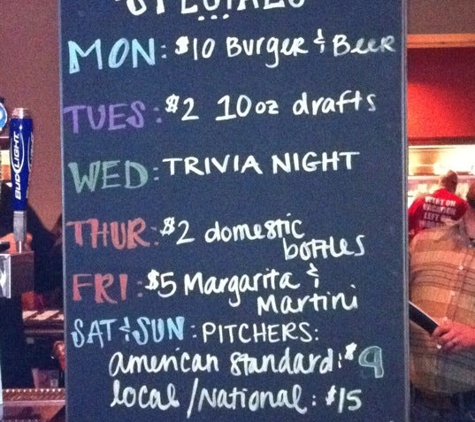 SPECIALS
MON: $10 Burger & Beer
TUES: $2 10oz drafts
WED: TRIVIA NIGHT
THUR: $2 domestic
bottles
FRI: $5 Margarita &
Martini
SAT & SUN: PITCHERS:
american standard: $9
local / National: $15
BUD LIGHT